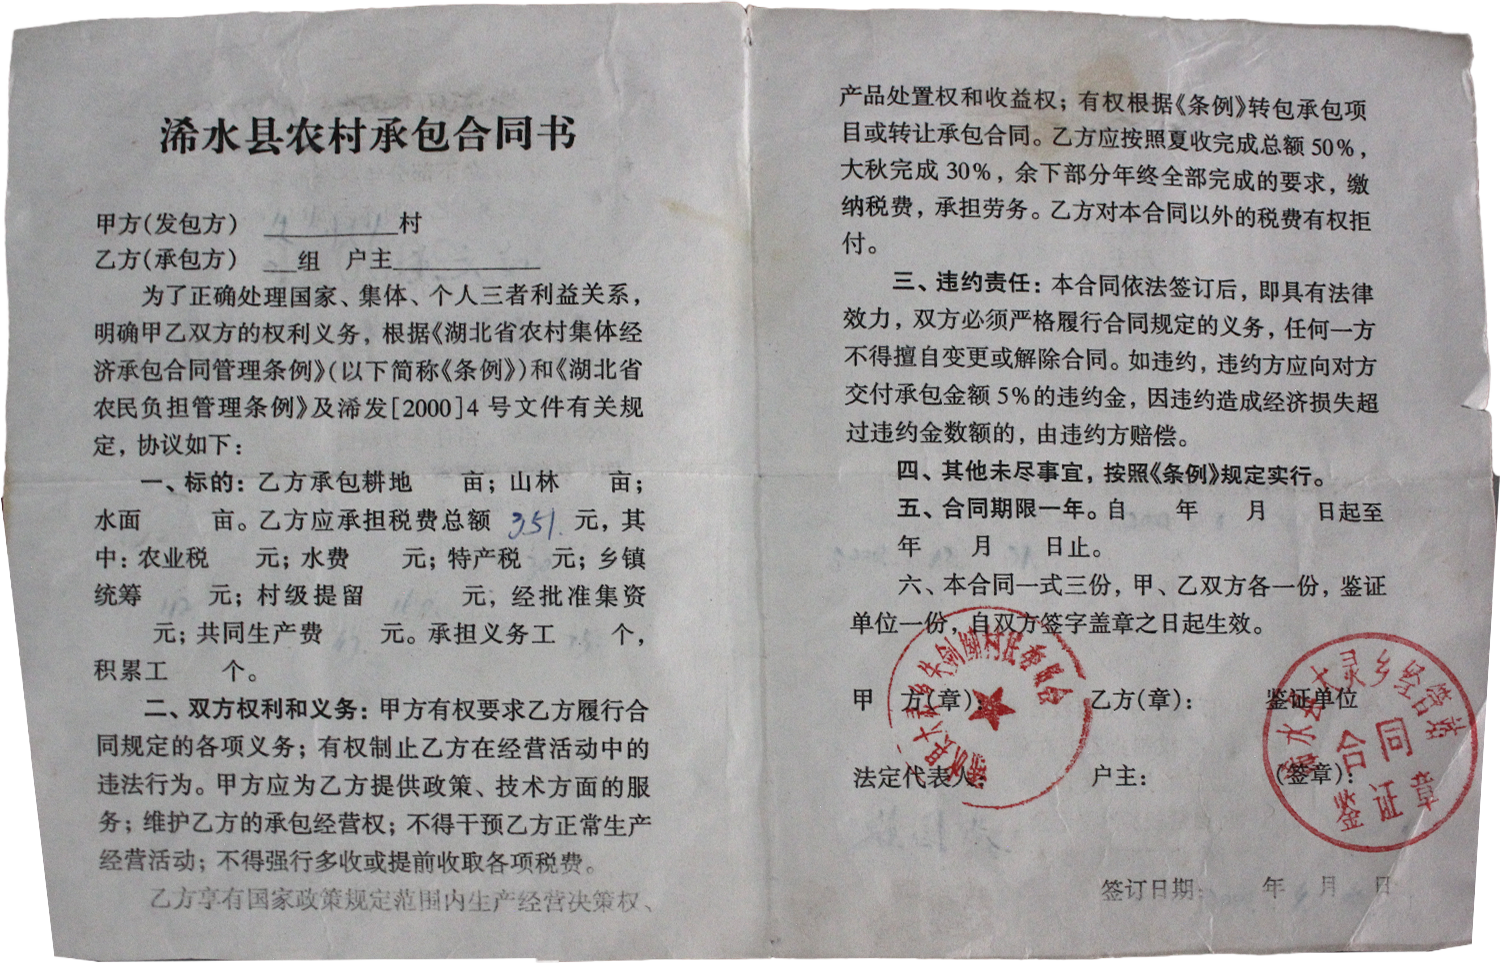 浠水县农村承包合同书
甲方(发包方) 村
乙方(承包方) 组 户主
为了正确处理国家、集体、个人三者利益关系,
明确甲乙双方的权利义务, 根据《湖北省农村集体经
济承包合同管理条例》(以下简称《条例》)和《湖北省
农民负担管理条例》及浠发[2000]4 号文件有关规
定, 协议如下:
一、标的: 乙方承包耕地 亩; 山林 亩;
水面 亩。乙方应承担税费总额 351. 元, 其
中: 农业税 元; 水费 元; 特产税 元; 乡镇
统筹 元; 村级提留 元, 经批准集资
元; 共同生产费 元。承担义务工 个,
积累工 个。
二、双方权利和义务: 甲方有权要求乙方履行合
同规定的各项义务; 有权制止乙方在经营活动中的
违法行为。甲方应为乙方提供政策、技术方面的服
务; 维护乙方的承包经营权; 不得干预乙方正常生产
经营活动; 不得强行多收或提前收取各项税费。
乙方享有国家政策规定范围内生产经营决策权、
产品处置权和收益权; 有权根据《条例》转包承包项
目或转让承包合同。乙方应按照夏收完成总额 50%,
大秋完成 30%, 余下部分年终全部完成的要求, 缴
纳税费, 承担劳务。乙方对本合同以外的税费有权拒
付。
三、违约责任: 本合同依法签订后, 即具有法律
效力, 双方必须严格履行合同规定的义务, 任何一方
不得擅自变更或解除合同。如违约, 违约方应向对方
交付承包金额 5%的违约金, 因违约造成经济损失超
过违约金数额的, 由违约方赔偿。
四、其他未尽事宜, 按照《条例》规定实行。
五、合同期限一年。自 年 月 日起至
年 月 日止。
六、本合同一式三份, 甲、乙双方各一份, 鉴证
单位一份, 自双方签字盖章之日起生效。
甲 方(章): 乙方(章): 鉴证单位
法定代表人: 户主: (签章):
浠水县大灵乡经管站
合同
鉴证章
签订日期: 年 月 日